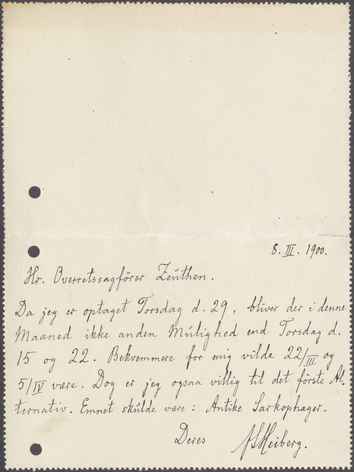 8. III. 1900.
Hr. Overretssagfører Zeüthen.
Da jeg er optaget Torsdag d. 29, bliver der i denne
Maaned ikke anden Mülighed end Torsdag d.
15 og 22. Bekvemmere for mig vilde 22/III og
5/IV være. Dog er jeg ogsaa villig til det förste Al-
ternativ. Emnet skülde være: Antike Sarkophager.
Deres JLHeiberg.